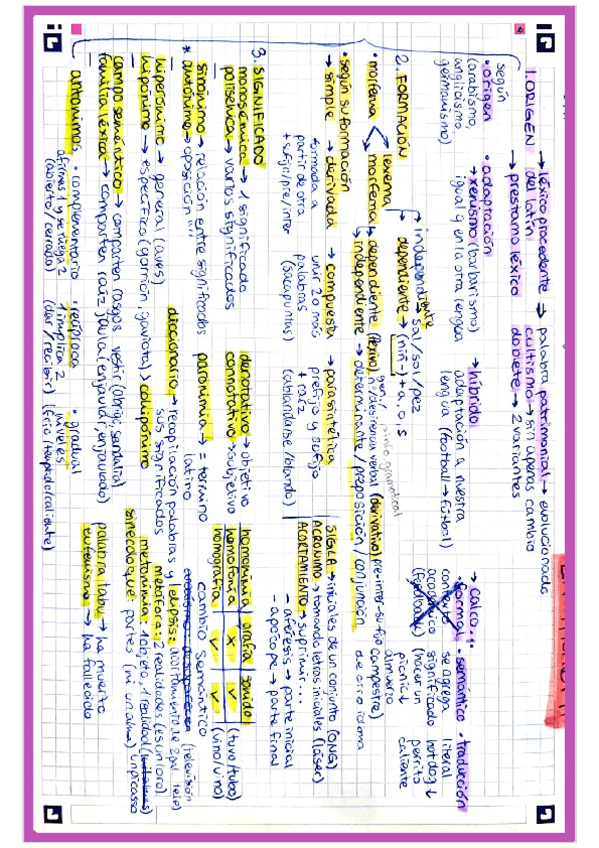 1. ORIGEN → léxico procedente → palabra patrimonial → evolucionado
del latín cultismo → sin apenas cambio
→ préstamo léxico doblete → 2 variantes
según
• origen • adaptación
(arabismo, → xenismo (barbarismo) → híbrido → calco...
anglicismo, igual q en la otra lengua adaptación a nuestra
germanismo) lengua (football → fútbol)
• semántico • traducción
se agrega literal
significado hotdog ↓
(hacer un perrito
picnic ↓ caliente
almuerzo
campestre)
2. FORMACIÓN
• morfema lexema → independiente → sal/sol/pez
dependiente → (niñ-) + a, o, s
morfema → dependiente (flexivo) gen/ nº/desinencia verbal (derivativo) pre-inter-sufijo
→ independiente → determinante / preposición / conjunción
de otro idioma
• según su formación
→ simple → derivada → compuesta → parasintética
formada a unir 2 o más prefijo y sufijo
partir de otra palabras + raíz
+ sufijo/pre/inter (sacapuntas) (ablandarse/blando)
SIGLA → iniciales de un conjunto (ONG)
ACRÓNIMO → tomando letras iniciales (láser)
ACORTAMIENTO → suprimir...
- aféresis → parte inicial
- apócope → parte final
3. SIGNIFICADO
monosémica → 1 significado denotativo → objetivo
polisémica → varios significados connotativo → subjetivo
* sinónimo → relación entre significados paronimia → = término
antónimo → oposición "" latino
homonimia grafía sonido
homofonía x ✓ (tuvo/tubo)
homografía ✓ ✓ (vino/vino)
hiperónimo → general (aves) diccionario → recopilación palabras y
hipónimo → específico (gorrión, gaviota) > cohipónimo sus significados
cambio semántico
elipsis: acortamiento de 2 pal. (televisión tele)
metáfora: 2 realidades (es un loro)
metonimia: 1 objeto, 1 realidad un picasso
sinécdoque: partes (ni un alma)
campo semántico → comparten rasgos vestir (abrigo, sandalia)
familia léxica → comparten raíz, jaula (enjaular, enjaulado)
palabra tabú → ha muerto
eufemismo → ha fallecido
antónimos • complementario • recíproca • gradual
afirmas 1 y se niega 2 1 implica 2 niveles
(abierto/cerrado) (dar/recibir) (frío/templado/caliente)